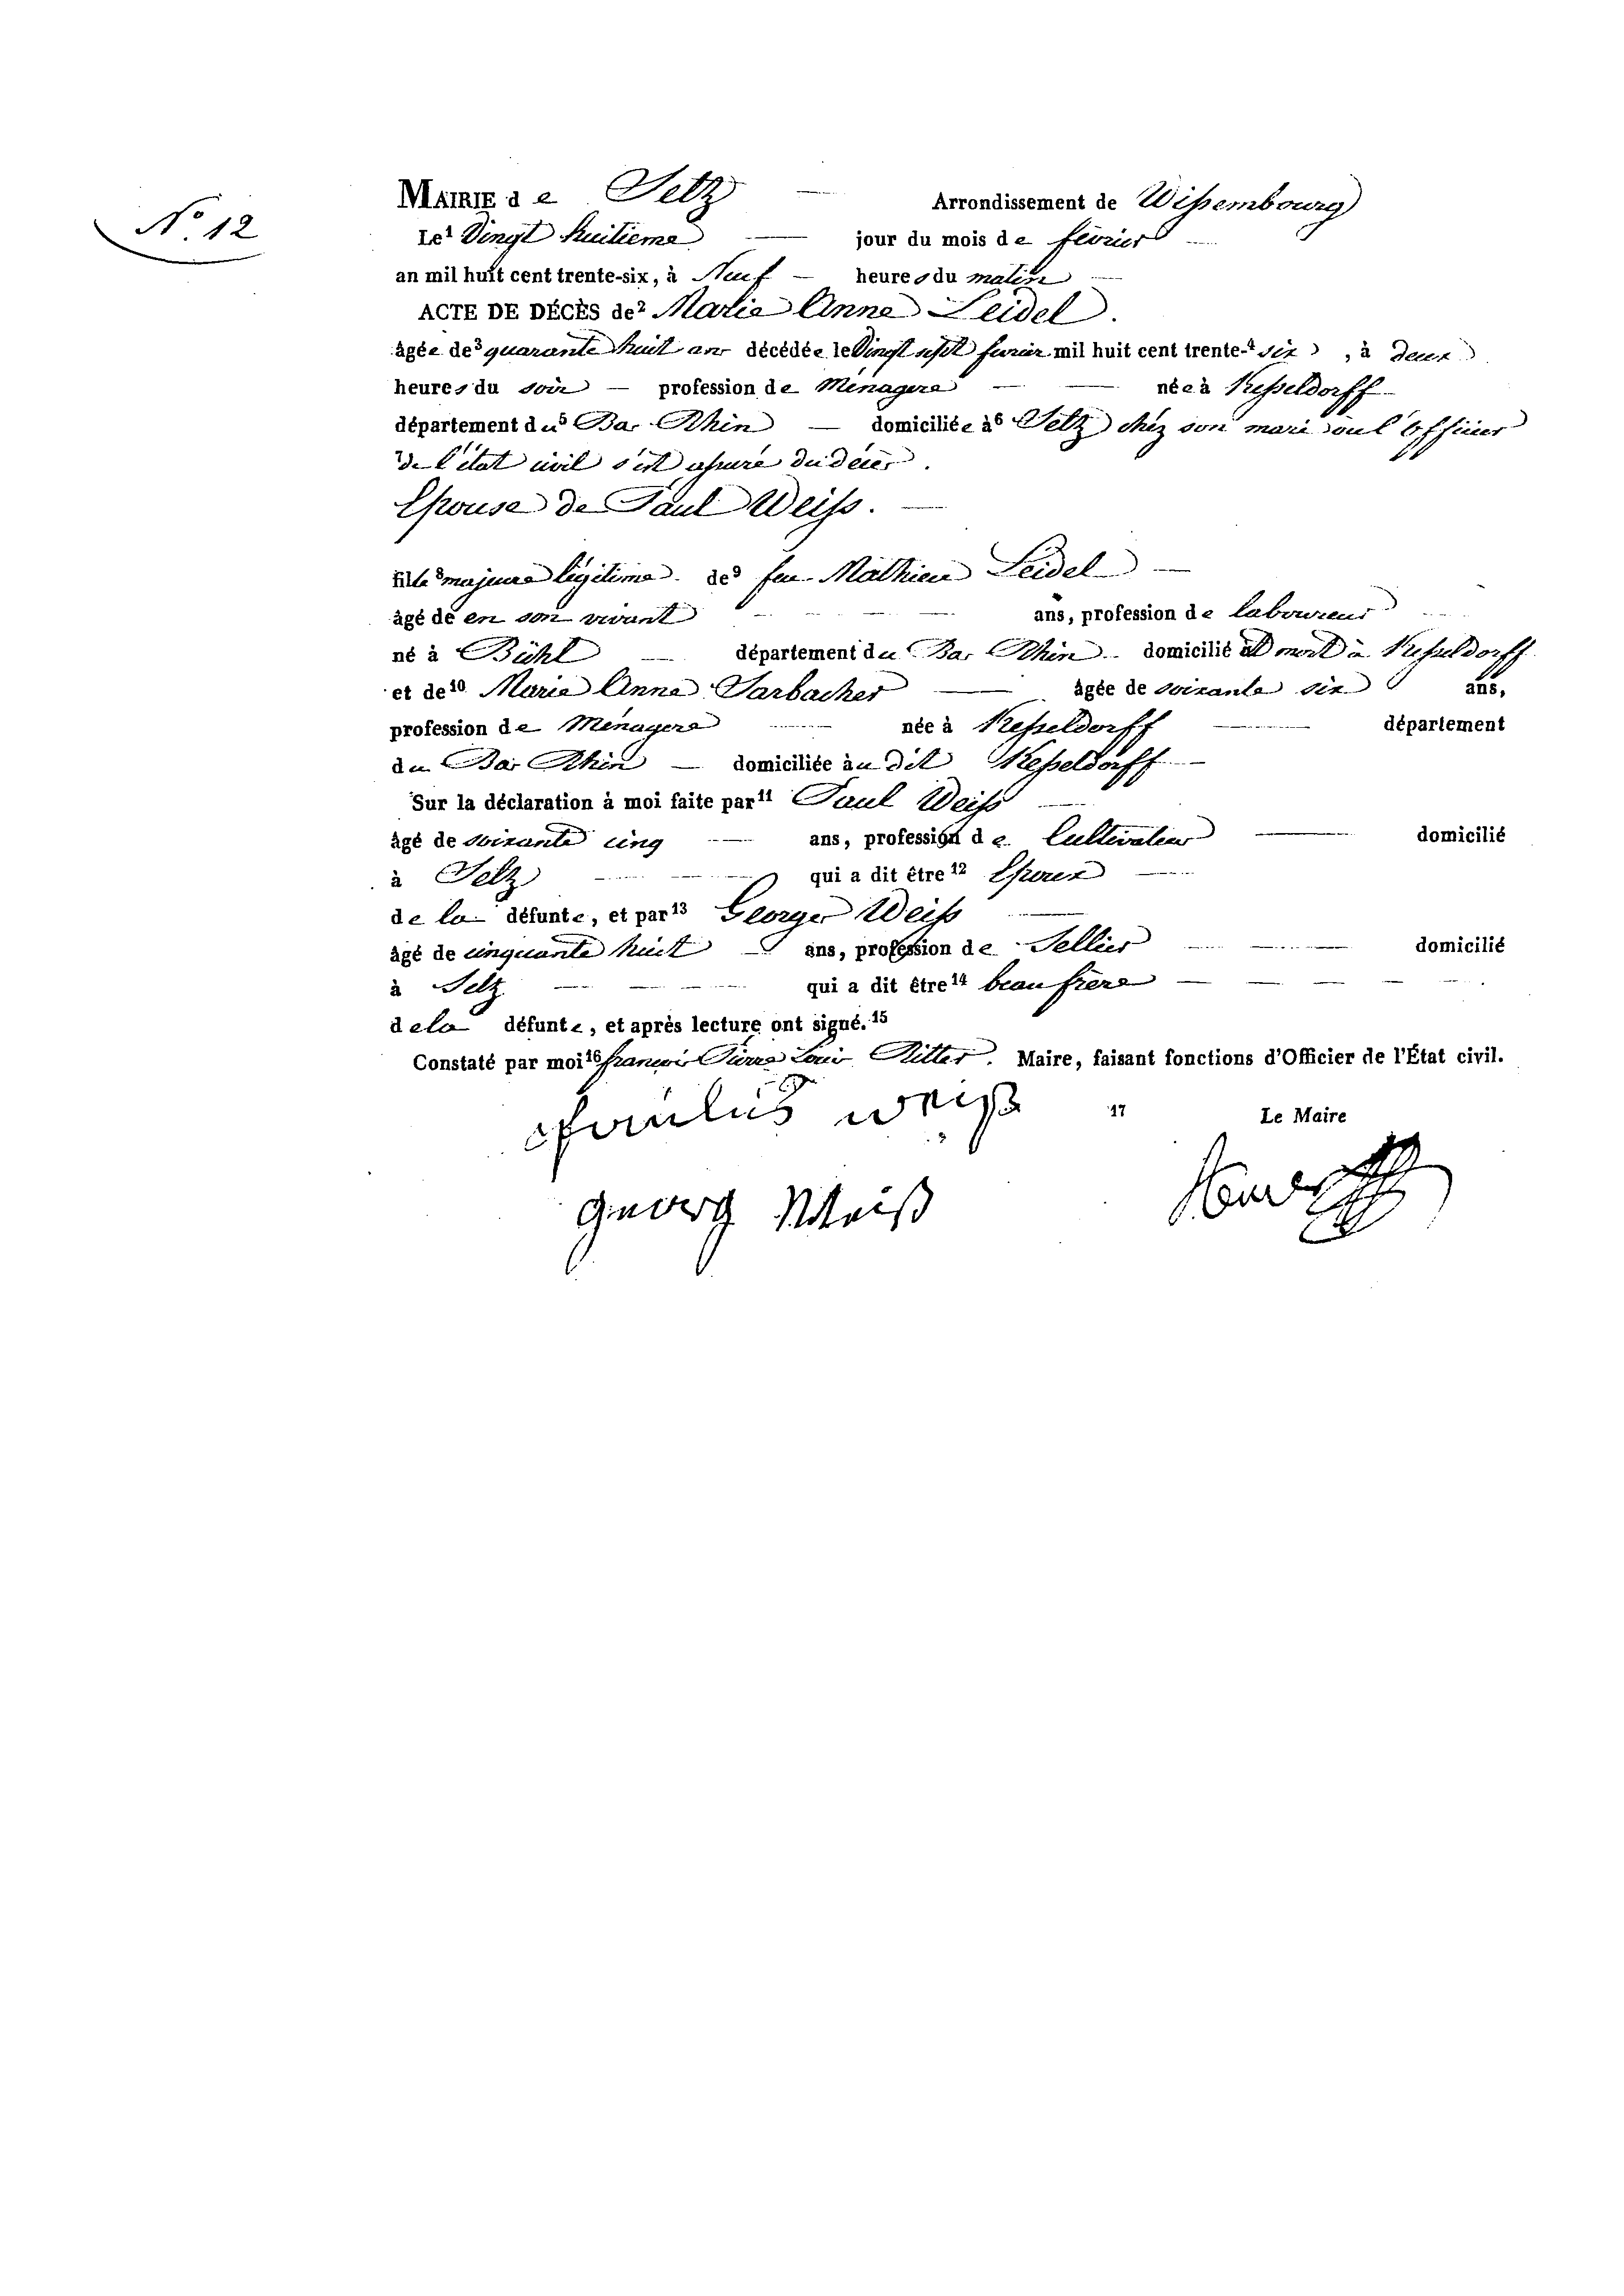 No. 12
MAIRIE de Seltz Arrondissement de Wißembourg
Le¹ Vingt huitieme jour du mois de février
an mil huit cent trente-six, à Neuf heures du matin
ACTE DE DÉCÈS de² Marie Anne Seidel.
âgée de³ quarante huit ans décédée le Vingt sept fevrier mil huit cent trente-⁴ six, à deux
heures du soir profession de Ménagere née à Keßeldorff
département du⁵ Bas Rhin domiciliée à⁶ Seltz chez son mari où l'officier
⁷de l'état civil s'est assuré du décès.
Epouse de Paul Weiß.
fille⁸ majeure légitime de⁹ feu Mathieu Seidel
âgé de en son vivant ans, profession de laboureur
né à Bühl département du Bas Rhin domicilié et mort à Keßeldorff
et de¹⁰ Marie Anne Sarbacher âgée de soixante six ans,
profession de Ménagere née à Keßeldorff département
du Bas Rhin domiciliée au dit Keßeldorff
Sur la déclaration à moi faite par¹¹ Paul Weiß
âgé de soixante cinq ans, profession de Cultivateur domicilié
à Seltz qui a dit être¹² Epoux
de la défunte, et par¹³ George Weiß
âgé de cinquante huit ans, profession de Sellier domicilié
à Seltz qui a dit être¹⁴ beau frère
de la défunte, et après lecture ont signé.¹⁵
Constaté par moi¹⁶ françois Pierre Louis Ritter. Maire, faisant fonctions d'Officier de l'État civil.
paulus weiß ¹⁷ Le Maire
georg Weiß